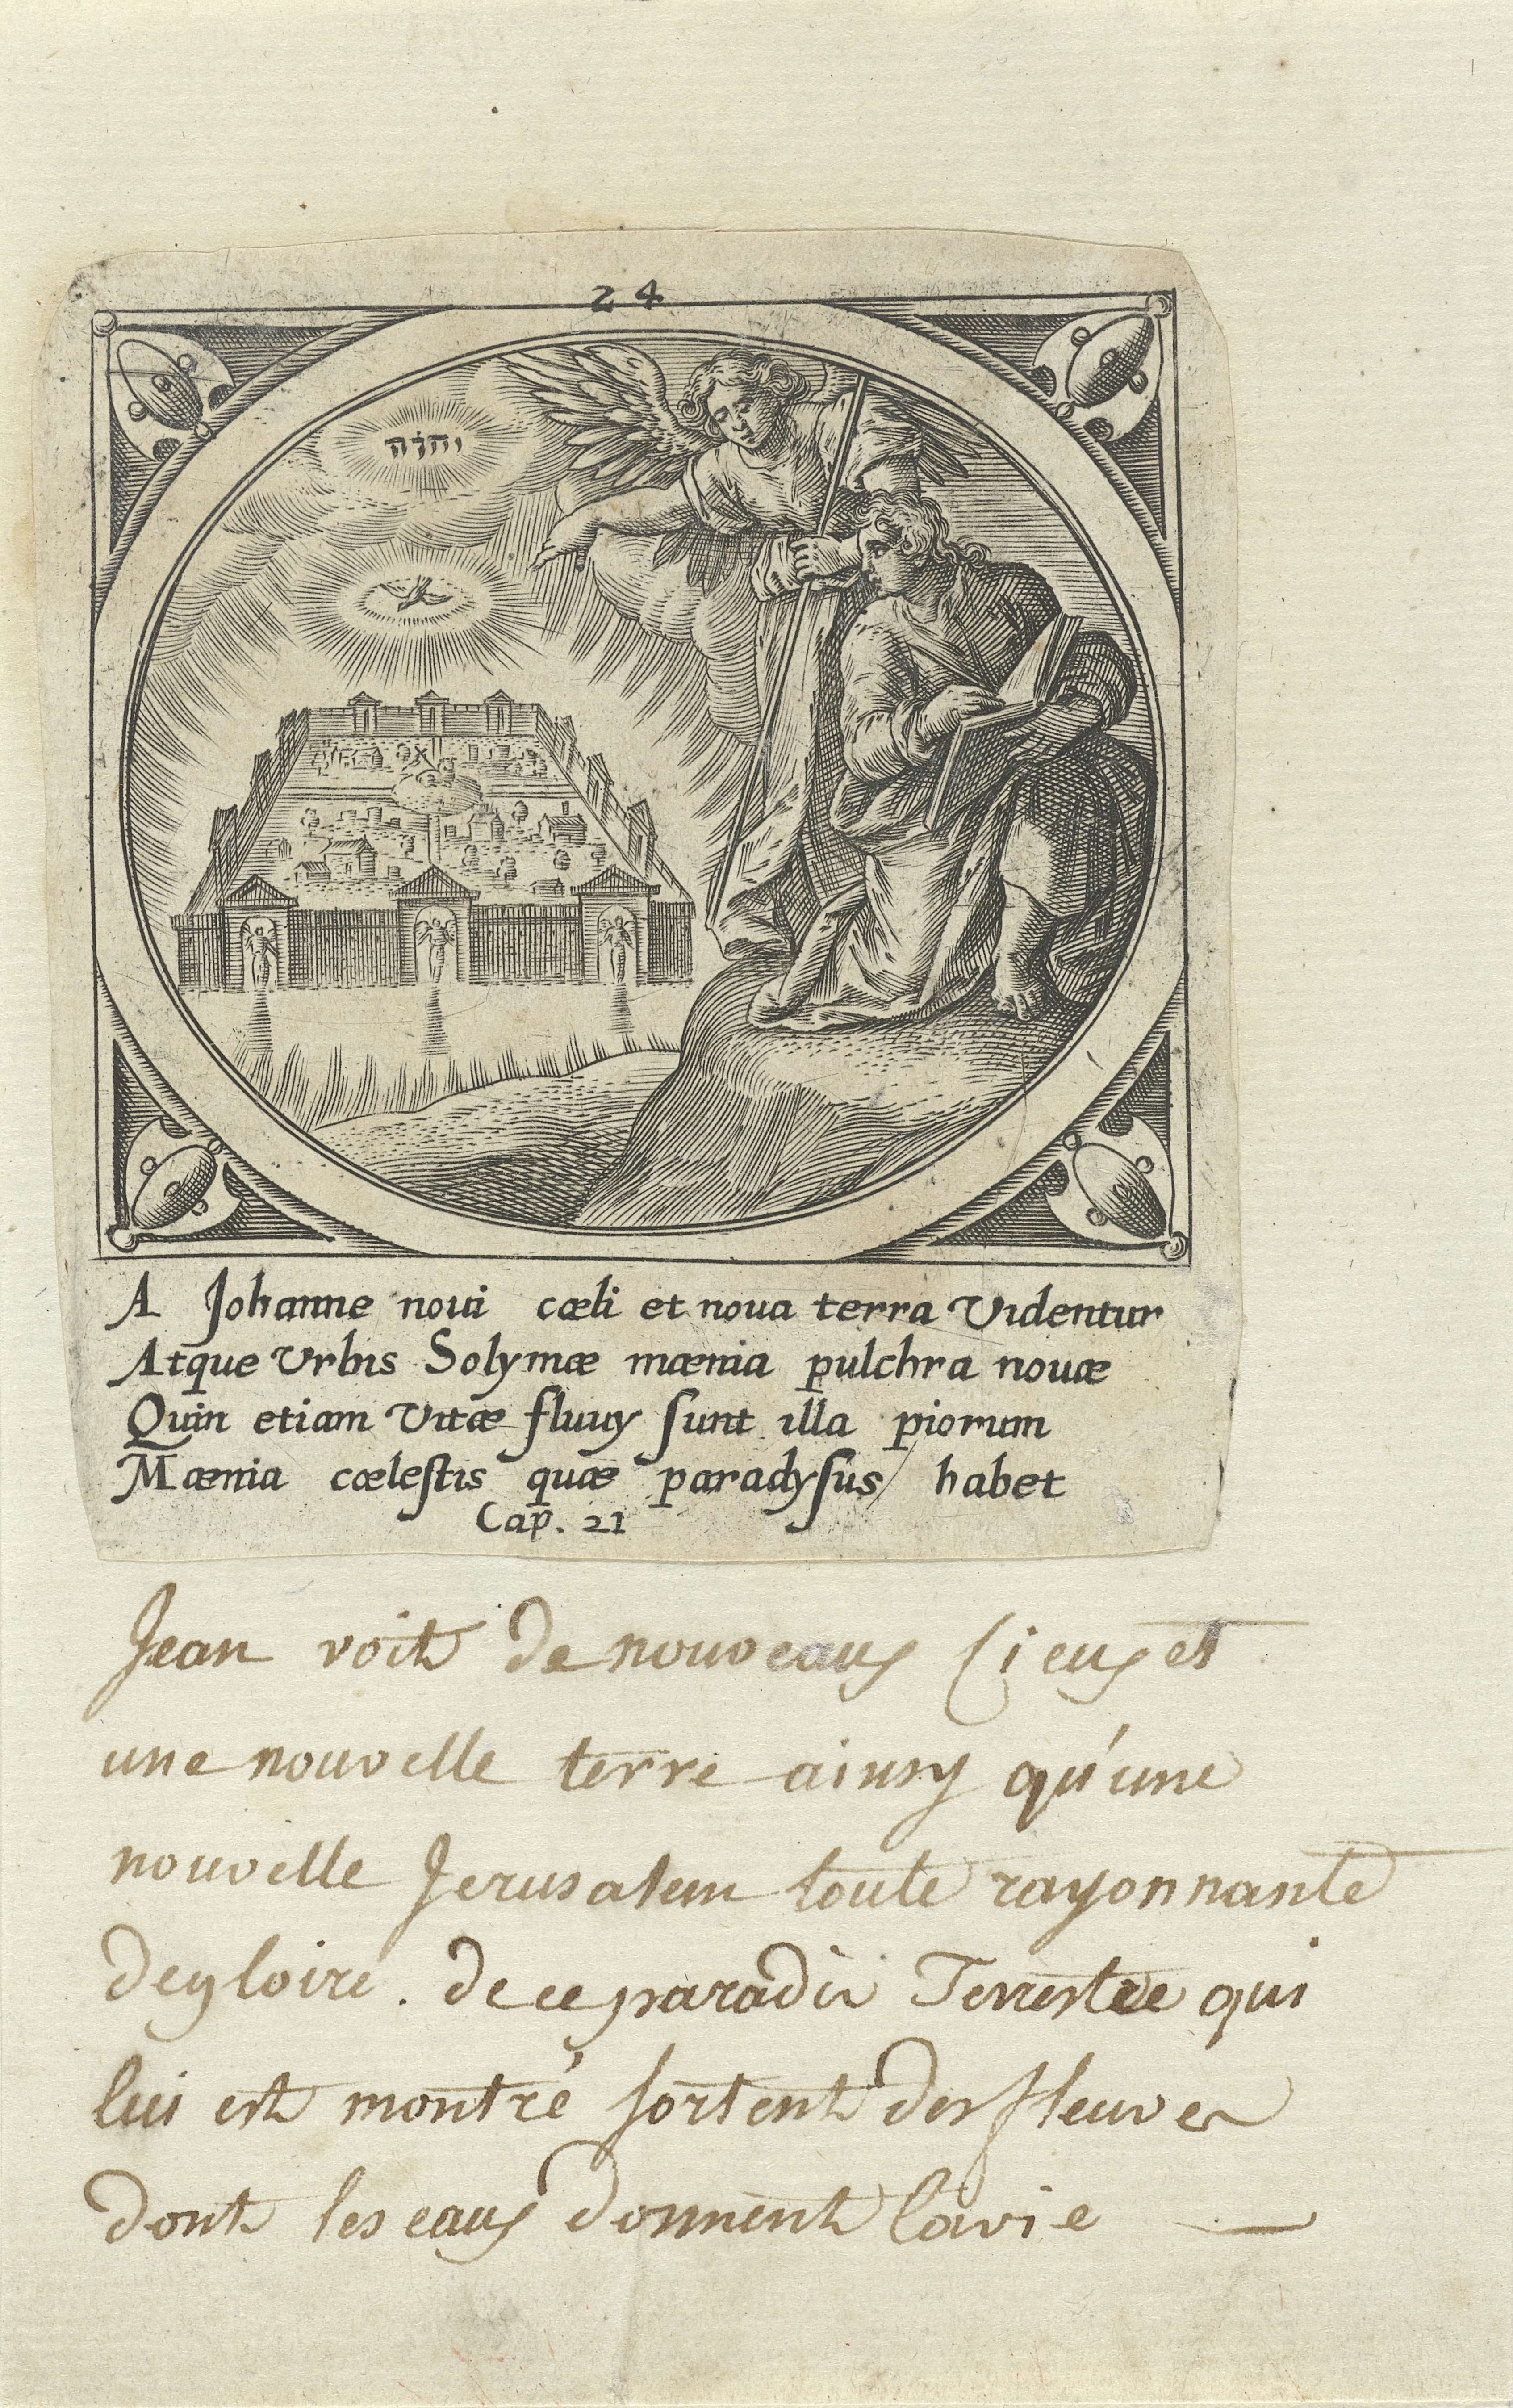 24
יהוה
A Johanne noui cæli et noua terra Videntur
Atque Vrbis Solymæ mænia pulchra nouæ
Quin etiam Vitæ fluuy ſunt illa piorum
Mænia cœleſtis quæ paradyſus habet
Cap. 21
Jean voit de nouveaux Cieux et
une nouvelle terre ainsy qu'une
nouvelle Jerusalem toute rayonnante
de gloire. de ce paradis Terrestre qui
lui est montré sortent des fleuves
dont les eaux donnent la vie —